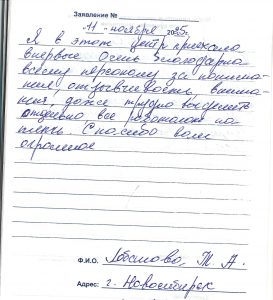 Заявление №
"11" ноября 2025г.
Я в этот центр приехала
впервые Очень благодарна
всему персоналу за понима-
ния, отзывчивость, внима-
ния, даже трудно выделить
отдельно, все работают на
пять. Спасибо вам
огромное
Ф.И.О. Т. А.
Адрес: г. Новосибирск